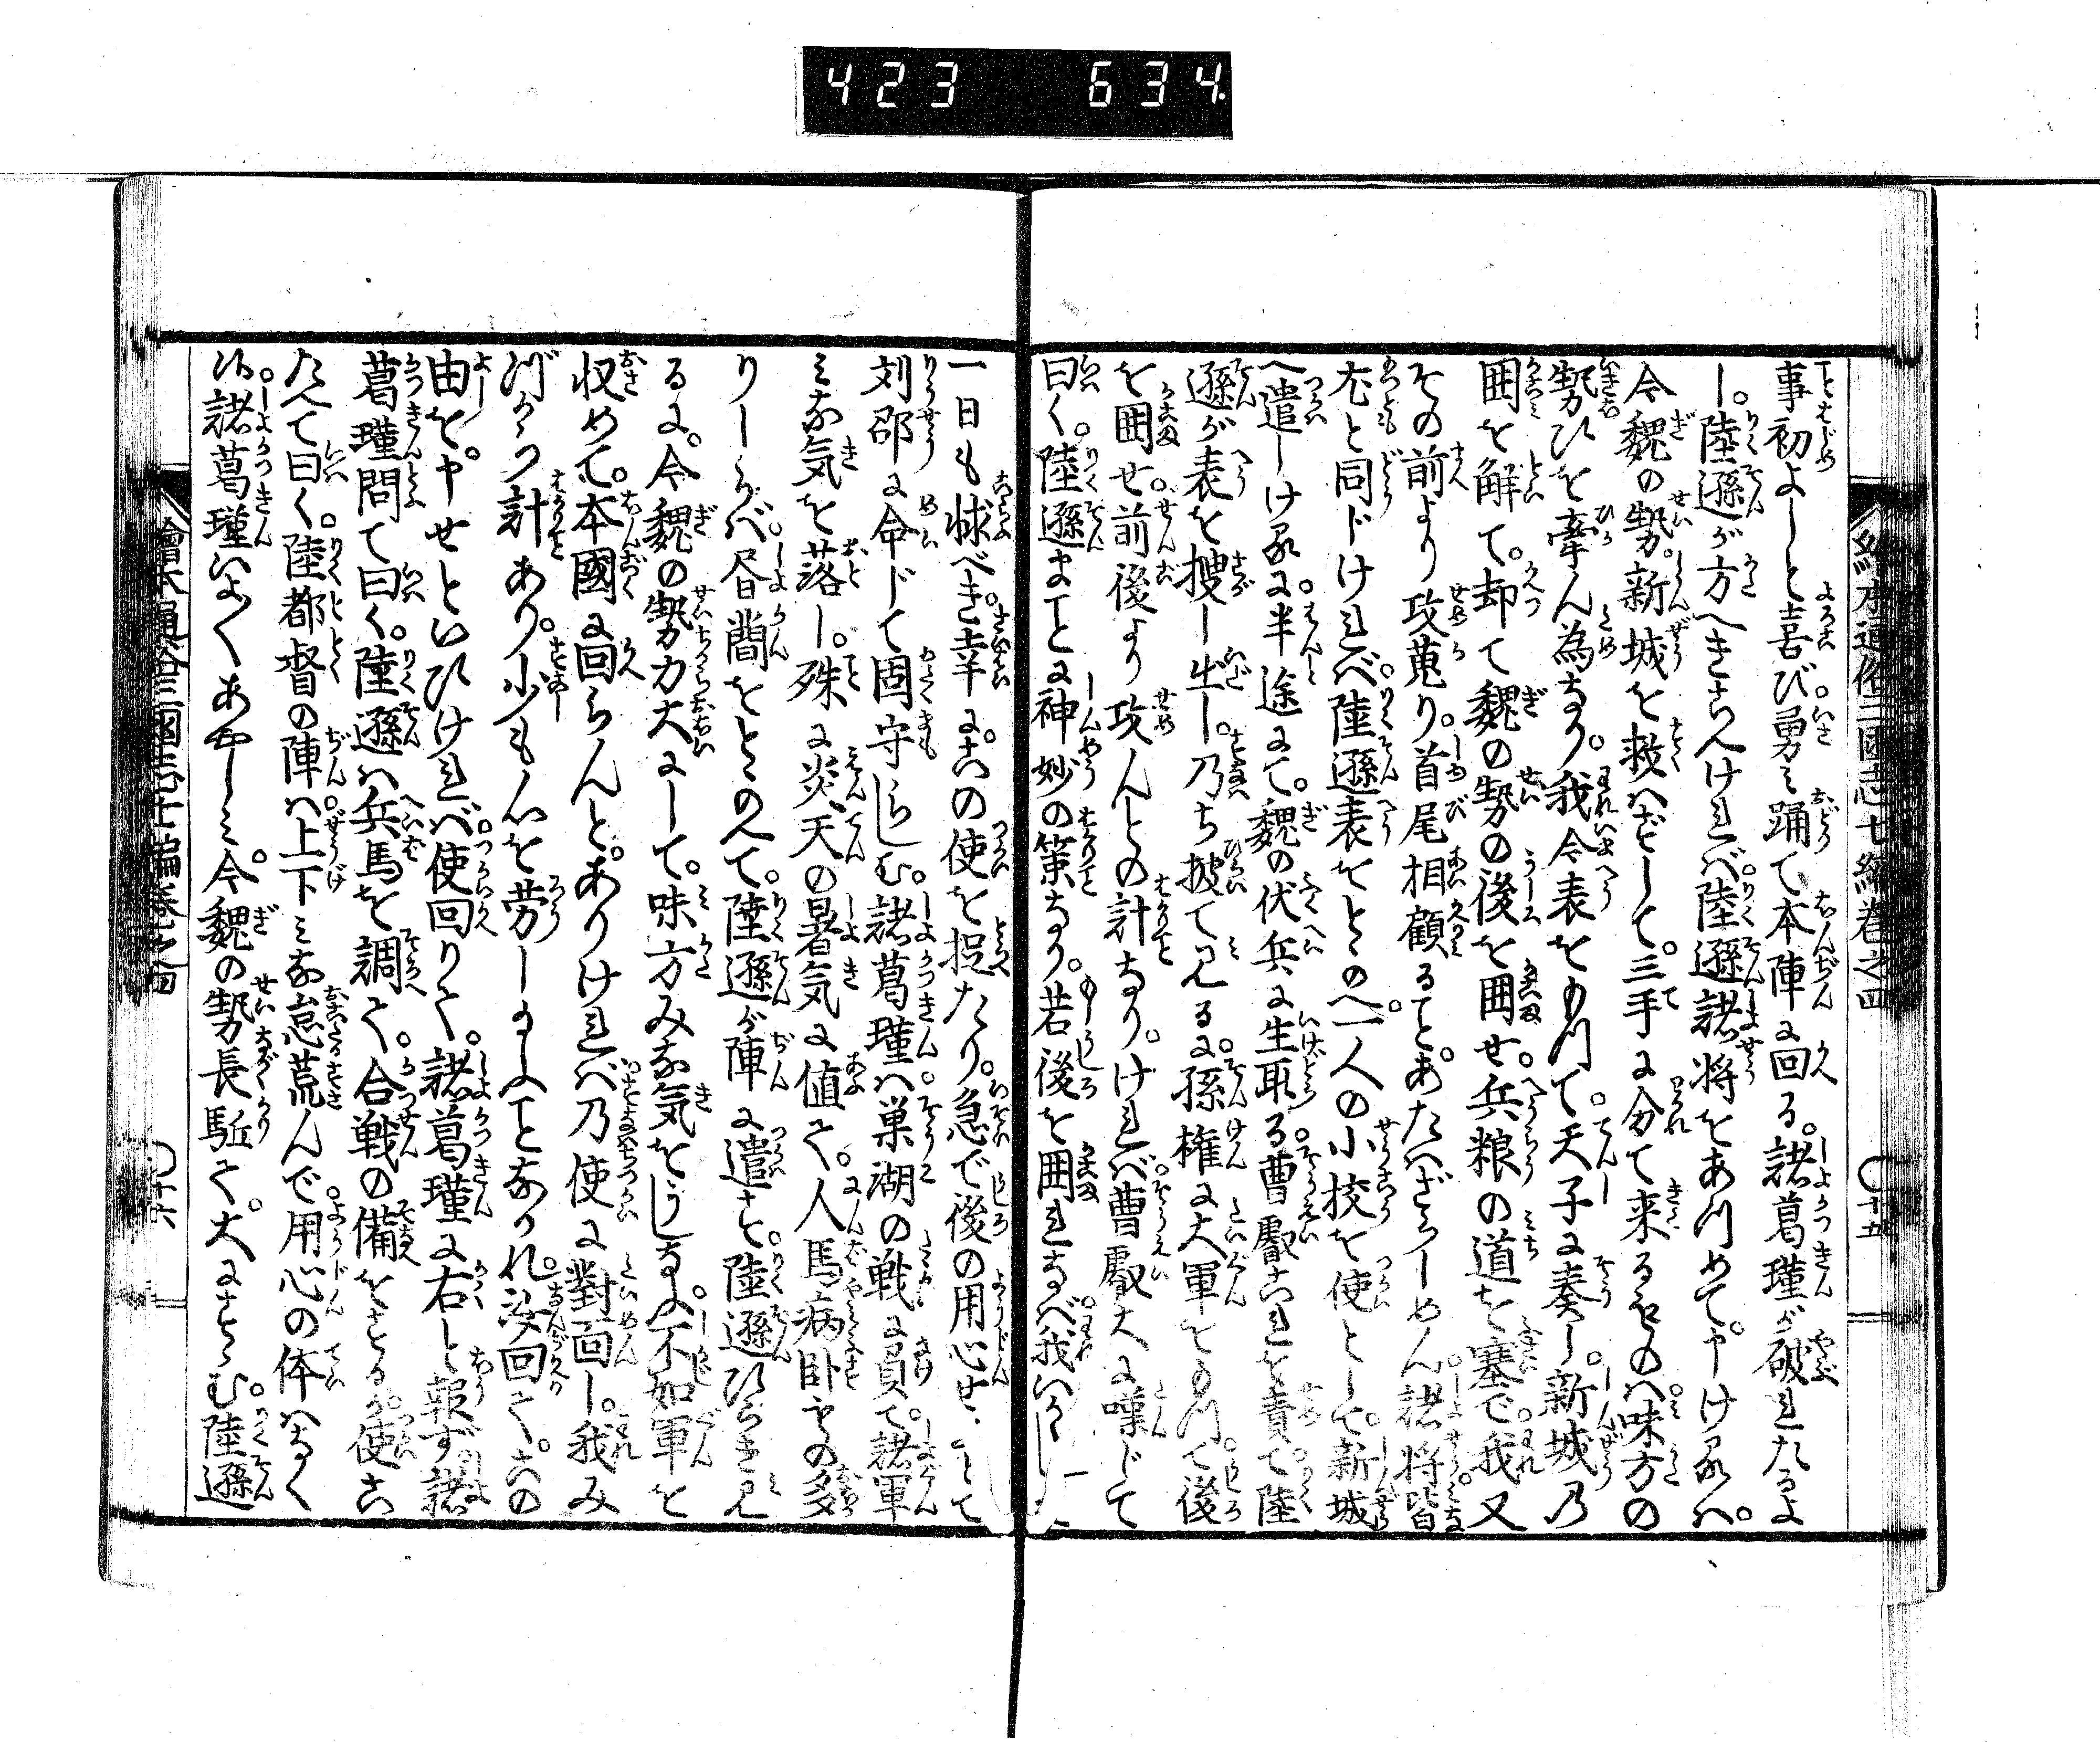 423 634
繪本通俗三國志七編卷之四 〇十五
事初よしと喜び勇ミ踊て本陣に回る。諸葛瑾が破れたるよ
し。陸遜が方へきこへけれバ陸遜諸将をあつめて申けるハ。
今魏の勢新城を救ハずして。三手に分て来るものハ味方の
勢ひを牽ん為なり。我今表をもつて。天子に奏し新城乃
囲を解て。却て魏の勢の後を囲せ。兵粮の道を塞で我又
その前より攻蒐り。首尾相顧ることあたハざらしめん諸将皆
尤と同ドけれバ。陸遜表をとゝのへ。一人の小校を使として新城
へ遣しける に。半途にて。魏の伏兵に生取る曹叡これを責て陸
遜が表を捜し出し。乃ち披て見るに。孫権に大軍をもつて後
を囲せ。前後より攻んとの計なり。けれバ曹叡大に嘆じて
曰く。陸遜まことに神妙の策なり。若後を囲れなバ我いかし
一日も べき。幸にこの使を捉たり。急で後の用心せ とて
刘邵に命じて固守らしむ。諸葛瑾ハ巣湖の戦に負て諸軍
ミな気を落し。殊に炎天の暑気に値て。人馬病臥もの多
りしかバ。書簡をとゝのへて。陸遜が陣に遣す。陸遜ひらき見
るに。今魏の勢力大にして。味方みな気をうしなふ。不如軍を
収めて。本國に回らんと。ありけれバ乃使に對面し。我み
づから計あり。少も心を労しまふことなかれ。汝回て。この
由を。申せといひけれバ。使回りて。諸葛瑾に右と報ず。諸
葛瑾問て曰く。陸遜ハ兵馬を調て。合戦の備をするか。使こ
たへて曰く。陸都督の陣ハ上下ミな怠荒んで用心の体ハなく
候。諸葛瑾いよ〱あやしミ。今魏の勢長駈て。大にすゝむ。陸遜
繪本通俗三國志七編卷之四 〇十六